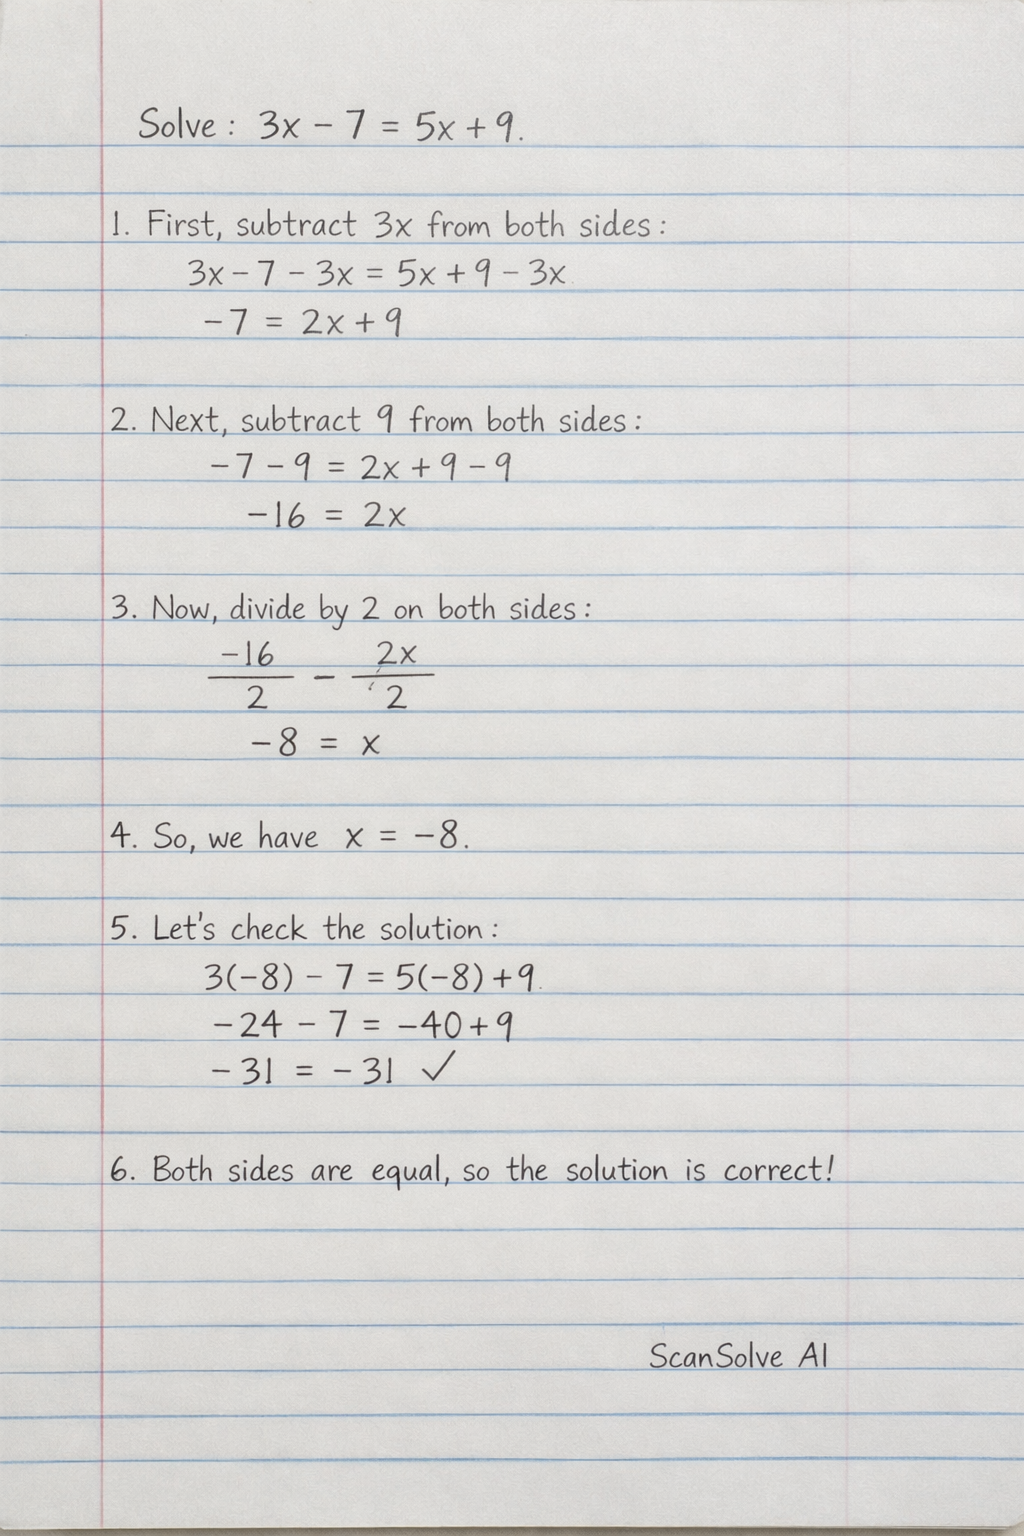 Solve: 3x - 7 = 5x + 9.
1. First, subtract 3x from both sides:
3x - 7 - 3x = 5x + 9 - 3x
-7 = 2x + 9
2. Next, subtract 9 from both sides:
-7 - 9 = 2x + 9 - 9
-16 = 2x
3. Now, divide by 2 on both sides:
-16 2x
—— - ——
2 2
-8 = x
4. So, we have x = -8.
5. Let's check the solution:
3(-8) - 7 = 5(-8) + 9.
-24 - 7 = -40 + 9
-31 = -31 ✓
6. Both sides are equal, so the solution is correct!
ScanSolve AI